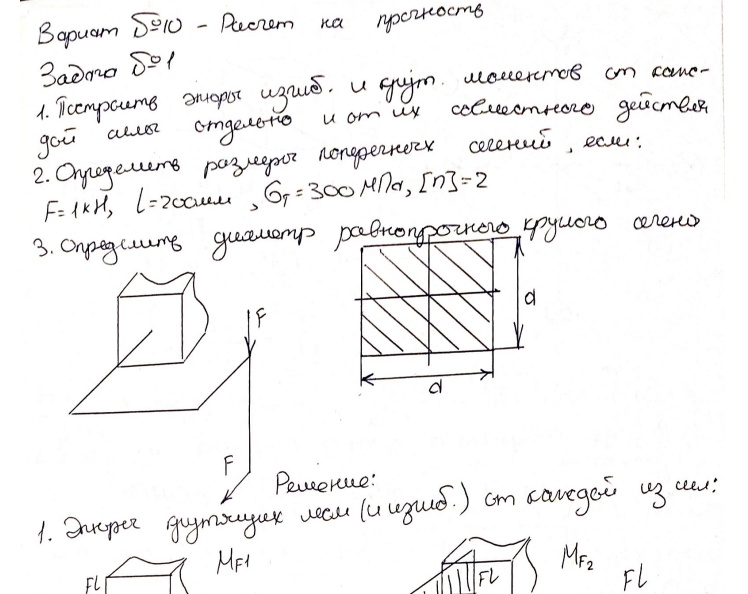 Вариант №10 - Расчет на прочность
Задача №1
1. Построить эпюры изгиб. и крут. моментов от каж-
дой силы отдельно и от их совместного действия
2. Определить размеры поперечных сечений, если:
F=1кН, l=200мм, σт=300 МПа, [n]=2
3. Определить диаметр равнопрочного круглого сечения
F
a
a
F
Решение:
1. Эпюры крутящих мом (и изгиб.) от каждой из сил:
Fl
MF1
Fl
MF2
Fl